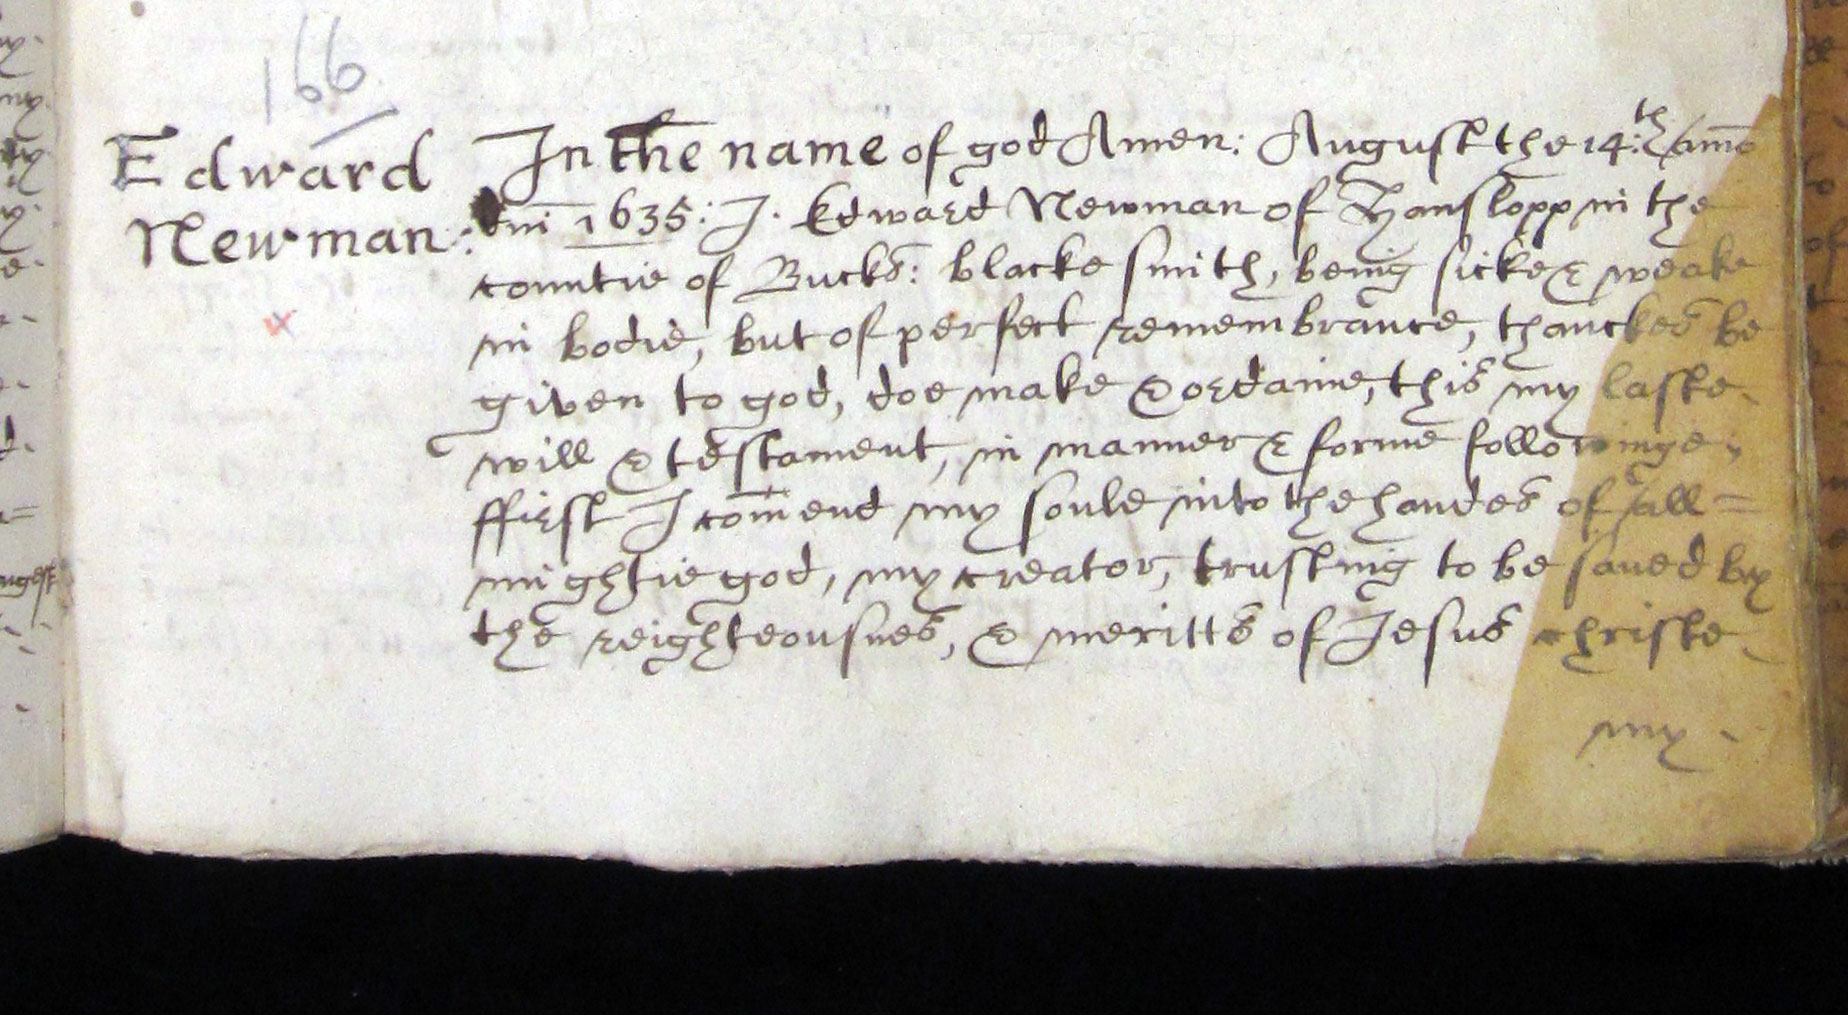 166
Edward
Newman:
In the name of god Amen: August the 14:th Anno
dni 1635: I. Edward Newman of Hanslopp in the
countie of Bucks: blacke smith, being sicke & weake
in bodie, but of perfect remembrance, thanckes be
given to god, doe make & ordaine, this my laste
will & testament, in manner & forme followinge,
ffirst I comend my soule into the handes of All=
mightie god, my creator, trusting to be saved by
the reighteousnes, & meritts of Jesus Christe
my